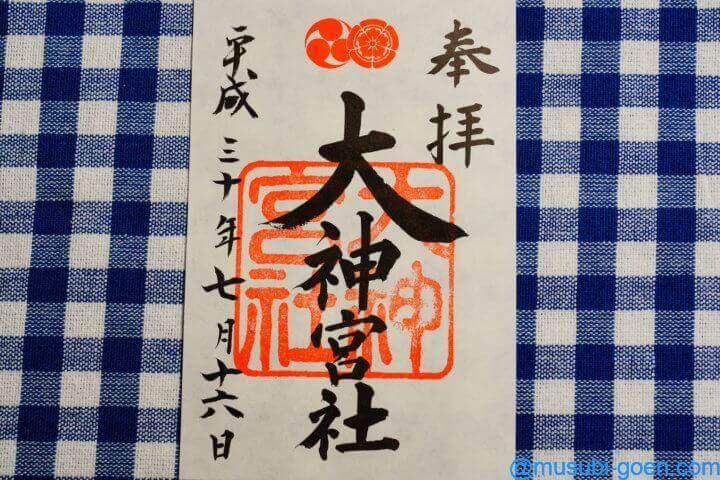 奉拝
大神宮社
大神宮社
平成三十年七月十六日
@musubi-goen.com